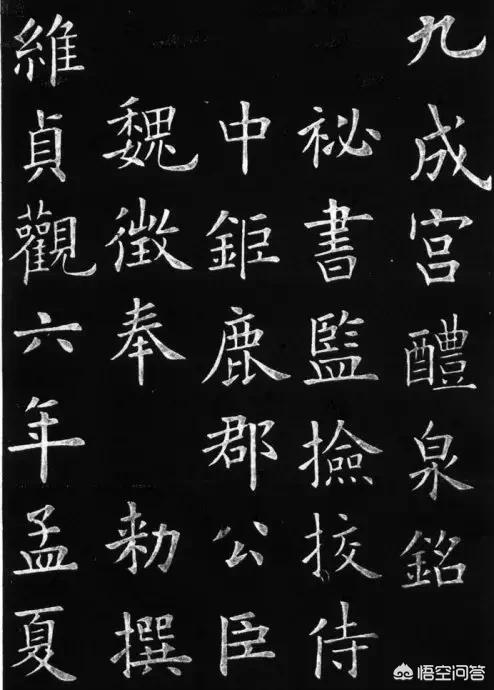 九成宫醴泉銘
祕書監撿挍侍
中鉅鹿郡公臣
魏徵奉 勑撰
維貞觀六年孟夏
悟空问答